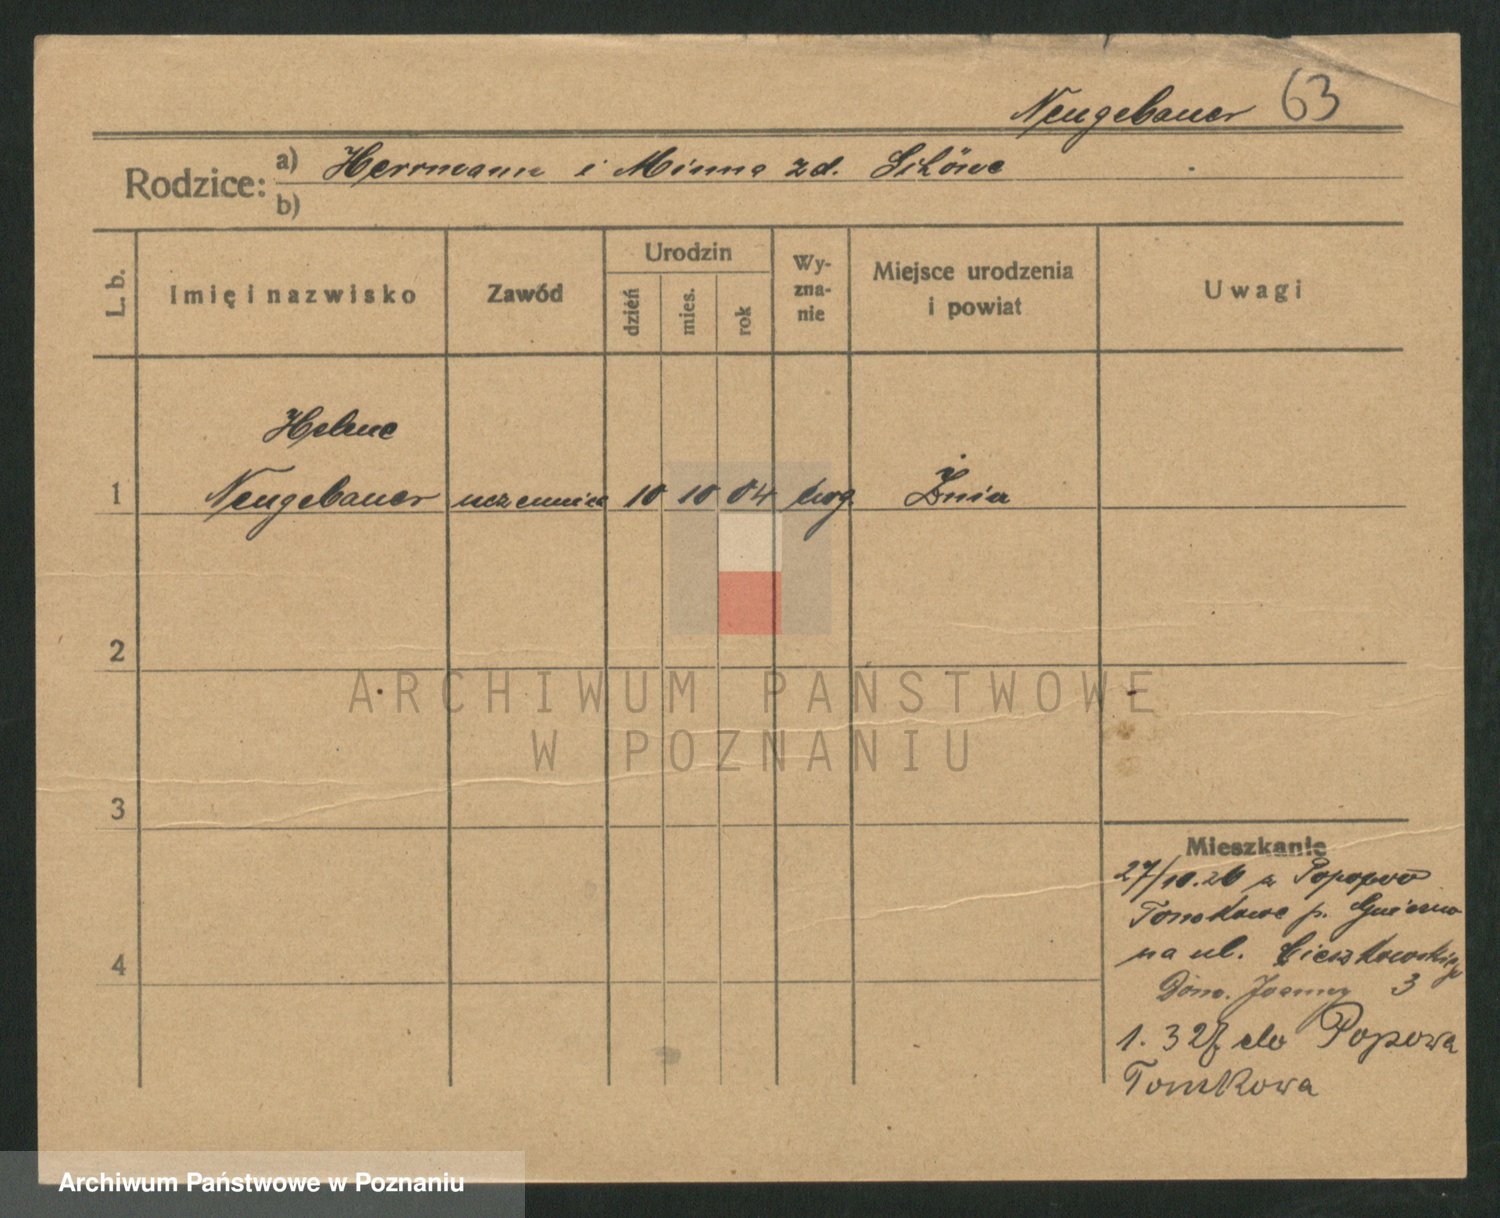 Neugebauer 63
Rodzice: a) Herrmann i Minna zd.
b)
L. b. Imię i nazwisko Zawód Urodzin dzień mies. rok Wyznanie Miejsce urodzenia i powiat Uwagi
Helene
1 Neugebauer uczennica 10 10 04 ewg. Żnin
2
3
4
Mieszkanie
27/10.26 z Popowo
Tomkowe p. Gniezno
na ul. Cieszkowskiego
3
1. 3 27 do Popowa
Tomkowa
ARCHIWUM PAŃSTWOWE
W POZNANIU
Archiwum Państwowe w Poznaniu